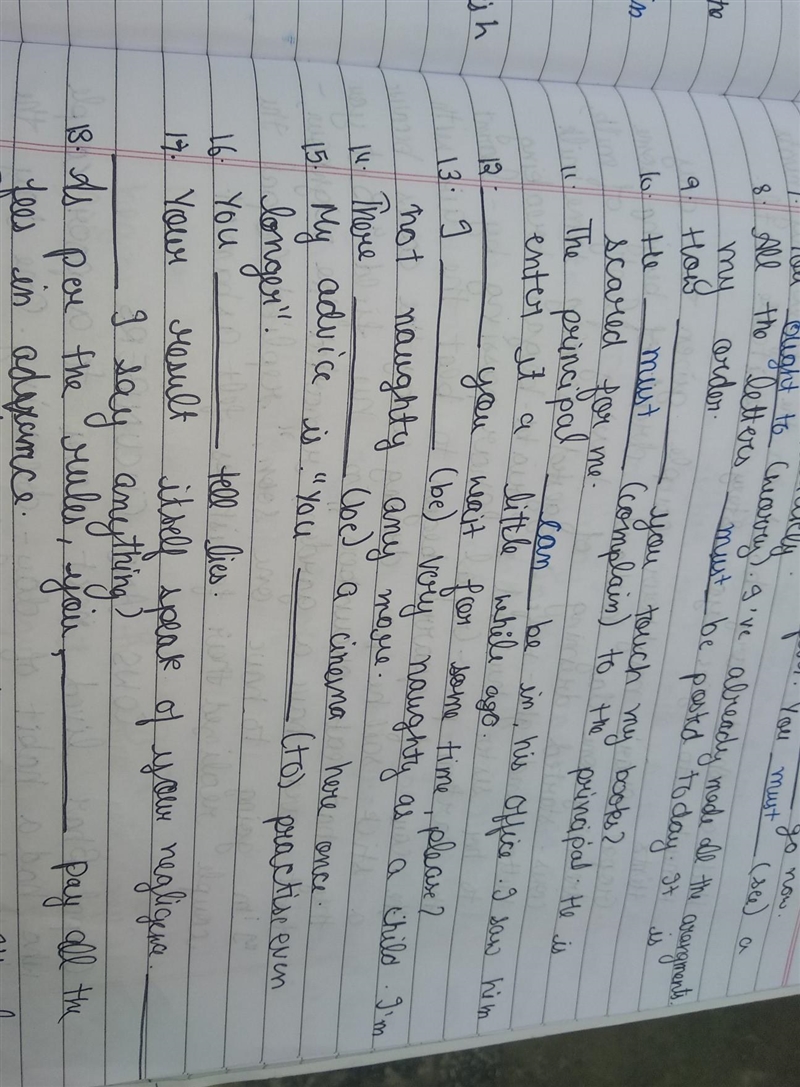 go now.
You must (see) a
You ought to (marry). I've already made all the arangments.
8. All the letters must be postd today. It is
my order.
9. How ______ you touch my books?
10. He must (complain) to the principal. He is
scared for me.
11. The principal can be in, his office. I saw him
enter it a little while ago.
12. ______ you wait for some time, please?
13. I ______ (be) very naughty as a child. I'm
not naughty any more.
14. There ______ (be) a cinema here once.
15. My advice is "You ______ (to) practise even
longer".
16. You ______ tell lies.
17. Your result itself speak of your negligence. ______
______ I say anything)
18. As per the rules, you, ______ pay all the
fees in advance.